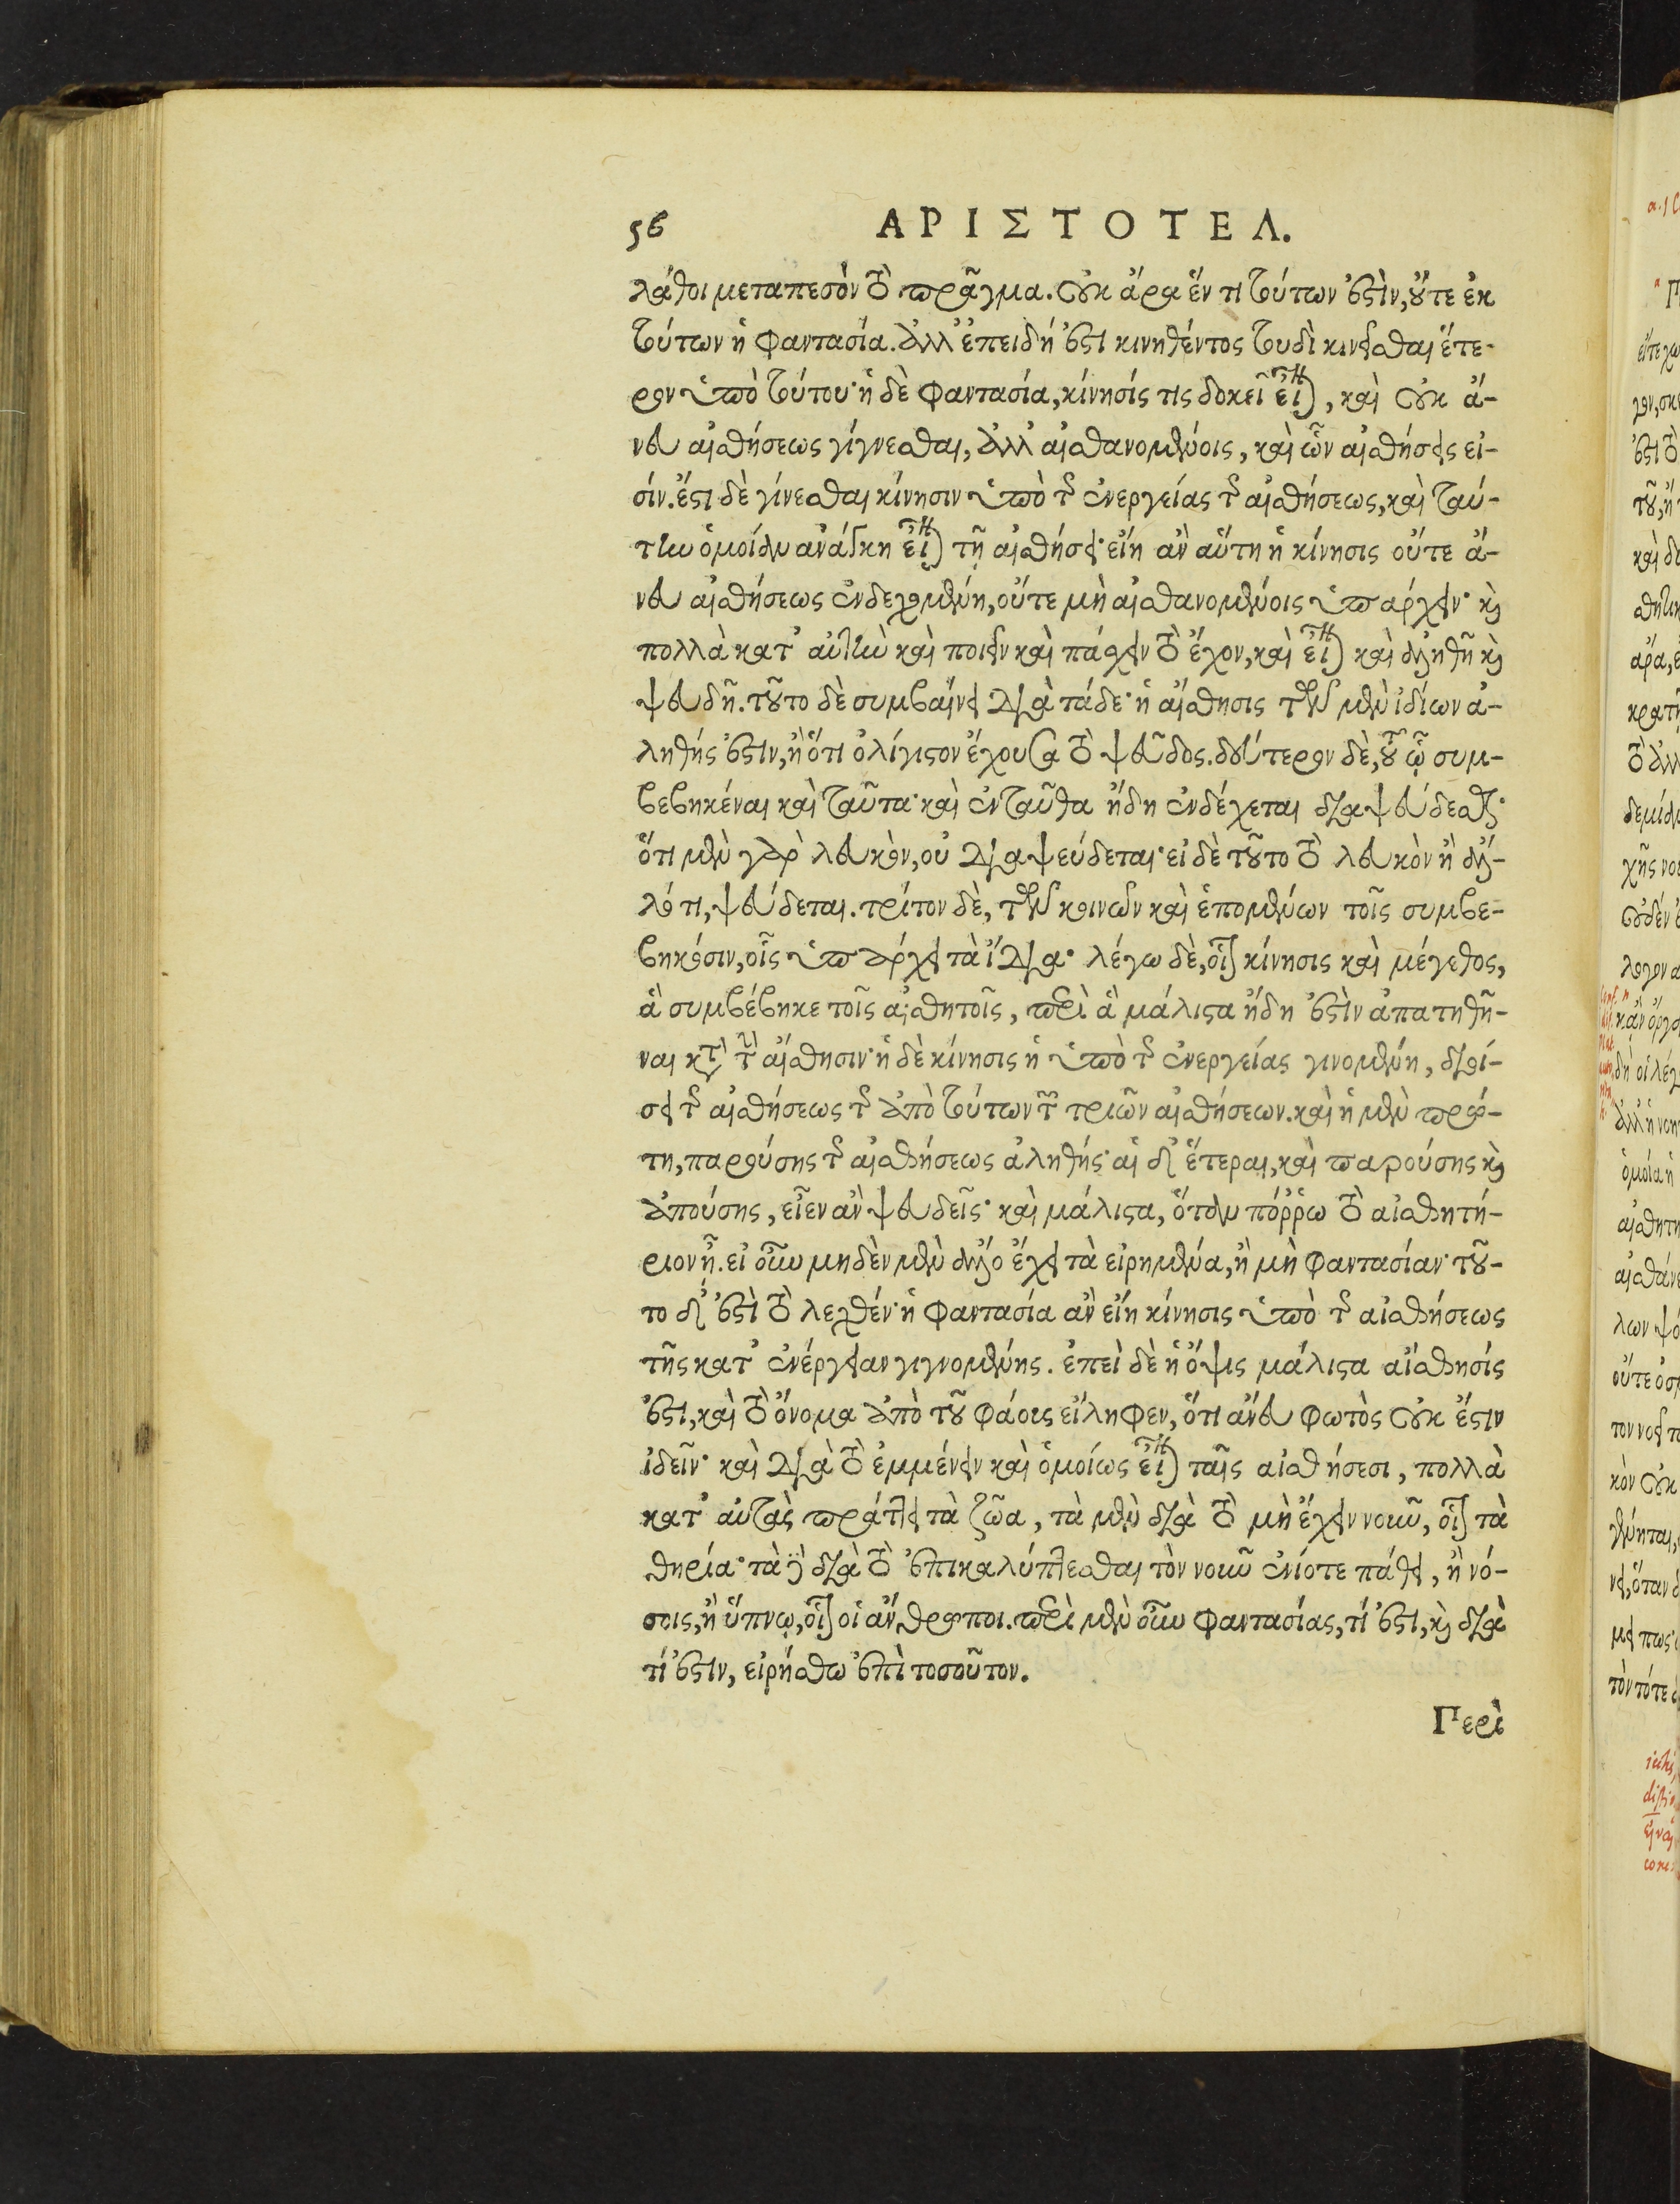 56 ΑΡΙΣΤΟΤΕΛ.
λάθοι μεταπεσὸν τὸ πρᾶγμα. Οὐκ ἄρα ἕν τι τούτων ἐστὶν, οὔτε ἐκ
τούτων ἡ φαντασία. ἀλλ' ἐπειδή ἐστι κινηθέντος τουδὶ κινεῖσθαι ἕτε-
ρον ὑπὸ τούτου· ἡ δὲ φαντασία, κίνησίς τις δοκεῖ εἶναι, καὶ Οὐκ ἄ-
νευ αἰσθήσεως γίγνεσθαι, ἀλλ' αἰσθανομένοις, καὶ ὧν αἰσθήσεις εἰ-
σίν. ἔστι δὲ γίνεσθαι κίνησιν ὑπὸ τῆς ἐνεργείας τῆς αἰσθήσεως, καὶ ταύ-
την ὁμοίαν ἀνάγκη εἶναι τῇ αἰσθήσει· εἴη ἂν αὕτη ἡ κίνησις οὔτε ἄ-
νευ αἰσθήσεως ἐνδεχομένη, οὔτε μὴ αἰσθανομένοις ὑπάρχειν· καὶ
πολλὰ κατ' αὐτὴν καὶ ποιεῖν καὶ πάσχειν τὸ ἔχον, καὶ εἶναι καὶ ἀληθῆ καὶ
ψευδῆ. τοῦτο δὲ συμβαίνει διὰ τάδε· ἡ αἴσθησις τῶν μὲν ἰδίων ἀ-
ληθής ἐστιν, ἢ ὅτι ὀλίγιστον ἔχουσα τὸ ψεῦδος. δεύτερον δὲ, τοῦ ᾧ συμ-
βεβηκέναι καὶ ταῦτα· καὶ ἐνταῦθα ἤδη ἐνδέχεται διαψεύδεσθαι·
ὅτι μὲν γὰρ λευκὸν, οὐ διαψεύδεται· εἰ δὲ τοῦτο τὸ λευκὸν ἢ ἄλ-
λό τι, ψεύδεται. τρίτον δὲ, τῶν κοινῶν καὶ ἑπομένων τοῖς συμβε-
βηκόσιν, οἷς ὑπάρχει τὰ ἴδια· λέγω δὲ, οἷον κίνησις καὶ μέγεθος,
ἃ συμβέβηκε τοῖς αἰσθητοῖς, περὶ ἃ μάλιστα ἤδη ἐστὶν ἀπατηθῆ-
ναι κατὰ τὴν αἴσθησιν· ἡ δὲ κίνησις ἡ ὑπὸ τῆς ἐνεργείας γινομένη, διοί-
σει τῆς αἰσθήσεως τῆς ἀπὸ τούτων τῶν τριῶν αἰσθήσεων. καὶ ἡ μὲν πρώ-
τη, παρούσης τῆς αἰσθήσεως ἀληθής· αἱ δ' ἕτεραι, καὶ παρούσης καὶ
ἀπούσης, εἶεν ἂν ψευδεῖς· καὶ μάλιστα, ὅταν πόῤῥω τὸ αἰσθητή-
ριον ᾖ. εἰ οὖν μηδὲν μὲν ἄλλο ἔχει τὰ εἰρημένα, ἢ μὴ φαντασίαν· τοῦ-
το δ' ἐστὶ τὸ λεχθέν· ἡ φαντασία ἂν εἴη κίνησις ὑπὸ τῆς αἰσθήσεως
τῆς κατ' ἐνέργειαν γιγνομένης. ἐπεὶ δὲ ἡ ὄψις μάλιστα αἴσθησίς
ἐστι, καὶ τὸ ὄνομα ἀπὸ τοῦ φάους εἴληφεν, ὅτι ἄνευ φωτὸς Οὐκ ἔστιν
ἰδεῖν· καὶ διὰ τὸ ἐμμένειν καὶ ὁμοίως εἶναι ταῖς αἰσθήσεσι, πολλὰ
κατ' αὐτὰς πράττει τὰ ζῶα, τὰ μὲν διὰ τὸ μὴ ἔχειν νοῦν, οἷον τὰ
θηρία· τὰ δὲ διὰ τὸ ἐπικαλύπτεσθαι τὸν νοῦν ἐνίοτε πάθει, ἢ νό-
σοις, ἢ ὕπνῳ, οἷον οἱ ἄνθρωποι. περὶ μὲν οὖν φαντασίας, τί ἐστι, καὶ διὰ
τί ἐστιν, εἰρήσθω ἐπὶ τοσοῦτον.
Περὶ